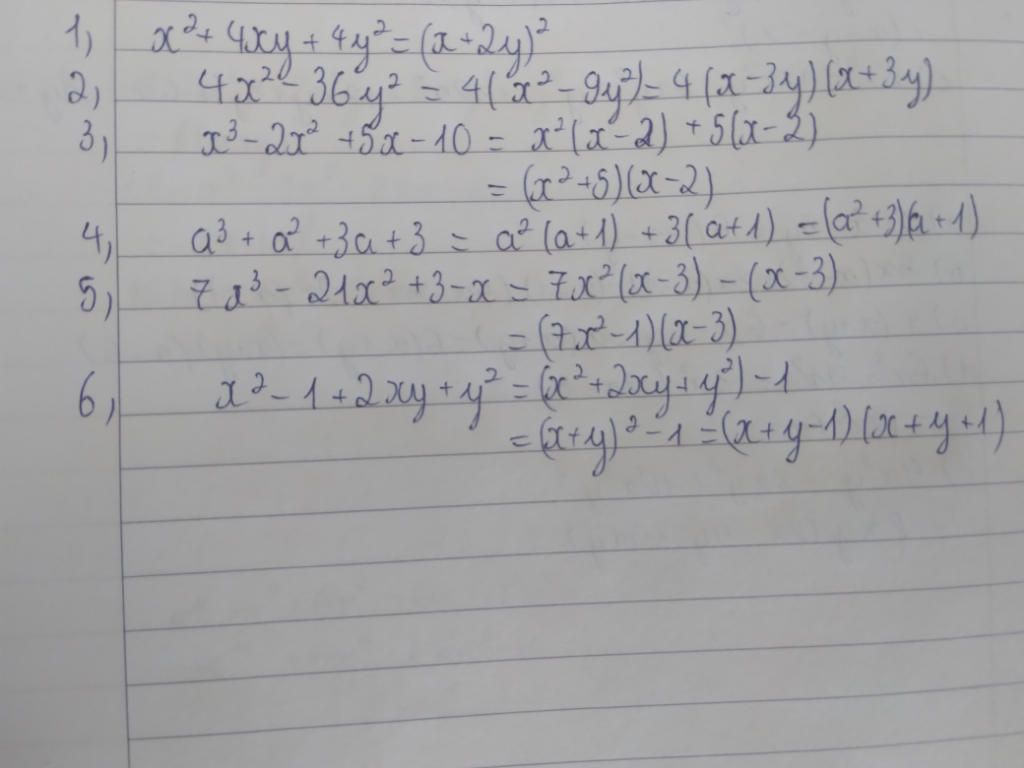 1, x² + 4xy + 4y² = (x + 2y)²
2, 4x² - 36y² = 4(x² - 9y²) = 4(x - 3y)(x + 3y)
3, x³ - 2x² + 5x - 10 = x²(x - 2) + 5(x - 2)
= (x² + 5)(x - 2)
4, a³ + a² + 3a + 3 = a²(a + 1) + 3(a + 1) = (a² + 3)(a + 1)
5, 7x³ - 21x² + 3 - x = 7x²(x - 3) - (x - 3)
= (7x² - 1)(x - 3)
6, x² - 1 + 2xy + y² = (x² + 2xy + y²) - 1
= (x + y)² - 1 = (x + y - 1)(x + y + 1)